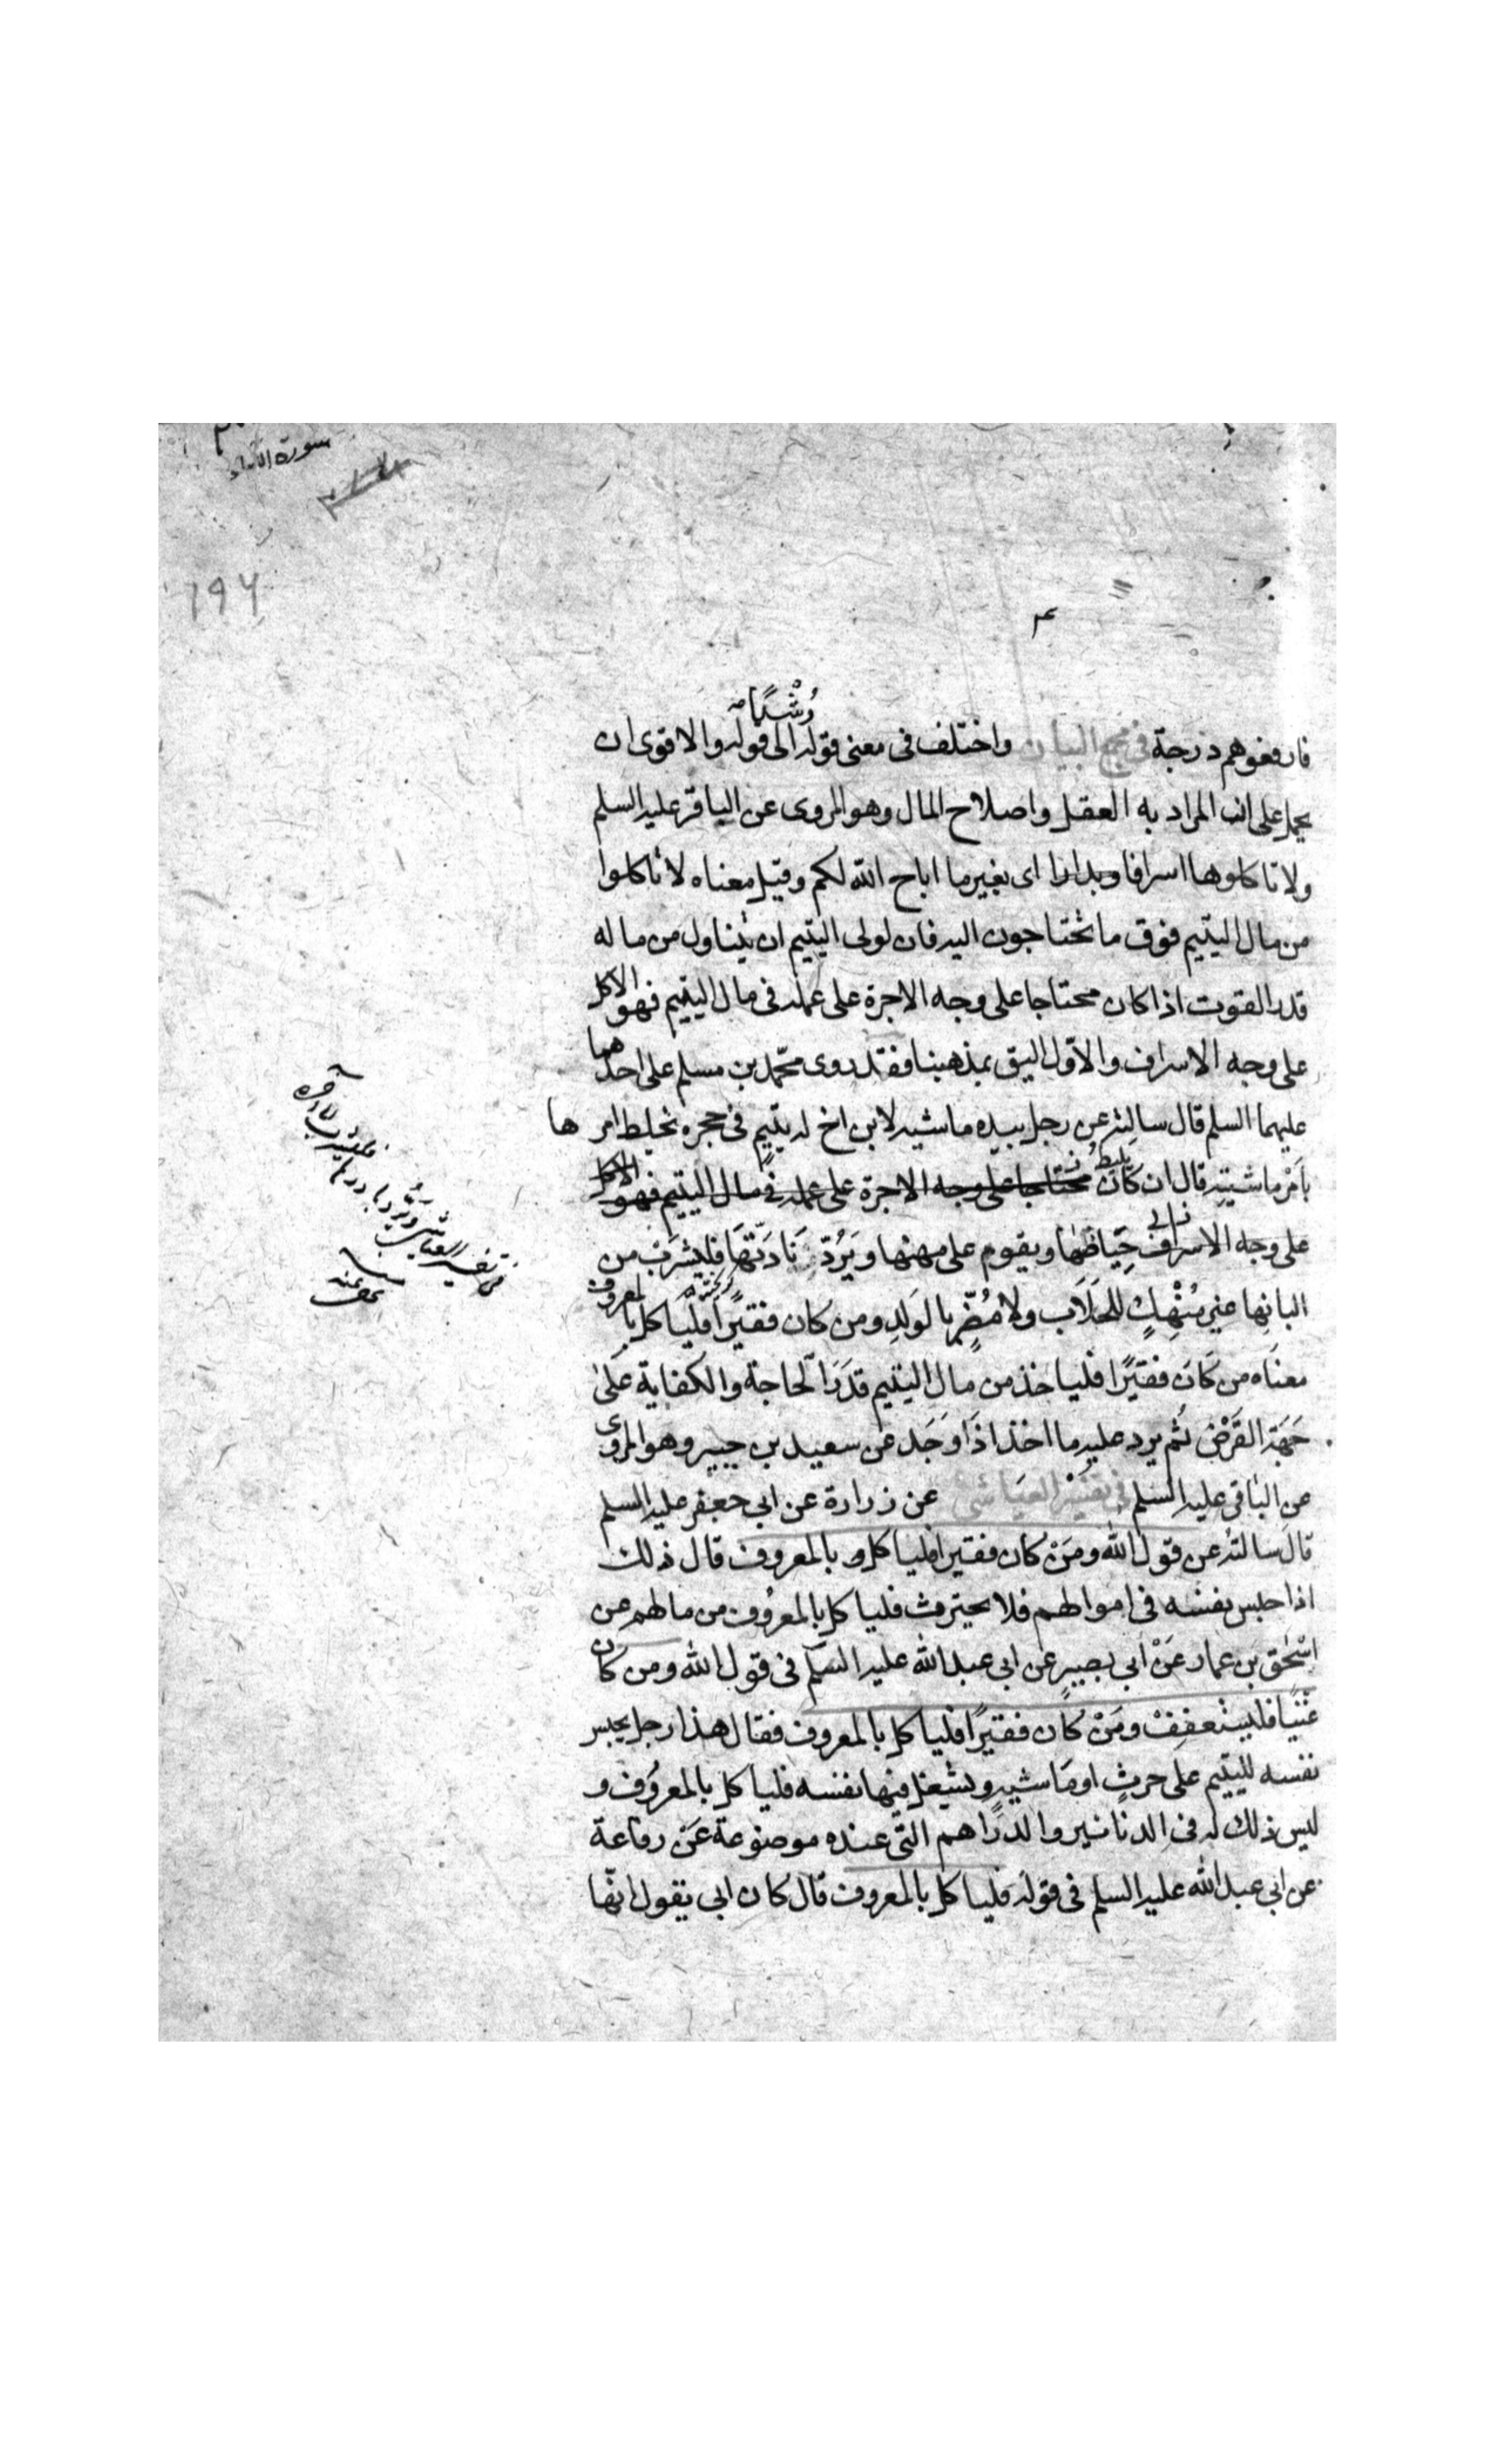 سورة النساء
١٩٦
فارفعوهم درجة في مجمع البيان واختلف في معنى قوله رُشْدًا الى قوله والاقوى ان
يحمل على ان المراد به العقل واصلاح المال وهو المروى عن الباقر عليه السلم
ولا تاكلوها اسرافا وبدارا اى بغير ما اباح الله لكم وقيل معناه لا تاكلوا
من مال اليتيم فوق ما تحتاجون اليه فان لولى اليتيم ان يتناول من ماله
قدر القوت اذا كان محتاجا على وجه الاجرة على عمله فى مال اليتيم فهو الاكل
على وجه الاسراف والاوّل اليق بمذهبنا فقد روى محمّد بن مسلم على احدهما
عليهما السلم قال سالته عن رجل بيده ماشيه لابن اخ له يتيمٍ فى حجره يخلط امرها
بأمْرِ ماشيته قال ان كان يليط محتاجا على وجه الاجرة على عمله فى مال اليتيم فهو الاكل
على وجه الاسراف حِيَاضَهَا ويقوم على مهنها ويَرُدّ نَادّتَهَا فليشرَبْ من
البانِها غير مُنْهِكٍ للحَلَاب ولا مُضِّرٍ بالوَلَدِ ومن كان فقيرًا فليأكل بالمعروف
معنَاه من كَانَ فقيرًا فلياخذ من مال اليتيم قَدَرَ الحاجة والكفاية عَلىٰ
جَهَةِ القَرْضِ ثُم يرد عليه ما اخذ اذَا وَجَد عن سعيد بن جبير وهو المروى
عن الباقر عليه السلم في تفسير العياشي عن زرارة عن ابى جعفر عليه السلم
قالَ سالتهُ عن قول الله ومَنْ كان فقيرا فلياكل بالمعروف قال ذلك
اذا حبس نفسَه فى اموالهم فلا يحترث فلياكل بالمعرُوف من مالهم عن
اسْحٰق بن عمار عَنْ أبي بصيرٍ عن ابى عبد الله عليه السلم فى قول الله ومن كان
غنيًّا فليستعففْ ومَنْ كان فقيرًا فلياكل بالمعروف فقال هذا رجل يحبس
نفسه لليتيم على حرثٍ او ماشيه ويشغل فيها نفسه فلياكل بالمعرُوف و
ليس ذلك له فى الدنانير والدرَاهم التى عنده موضوعة عَنْ رفاعة
عن ابى عبد الله عليه السلم فى قوله فلياكل بالمعروف قال كان ابى يقول انّها